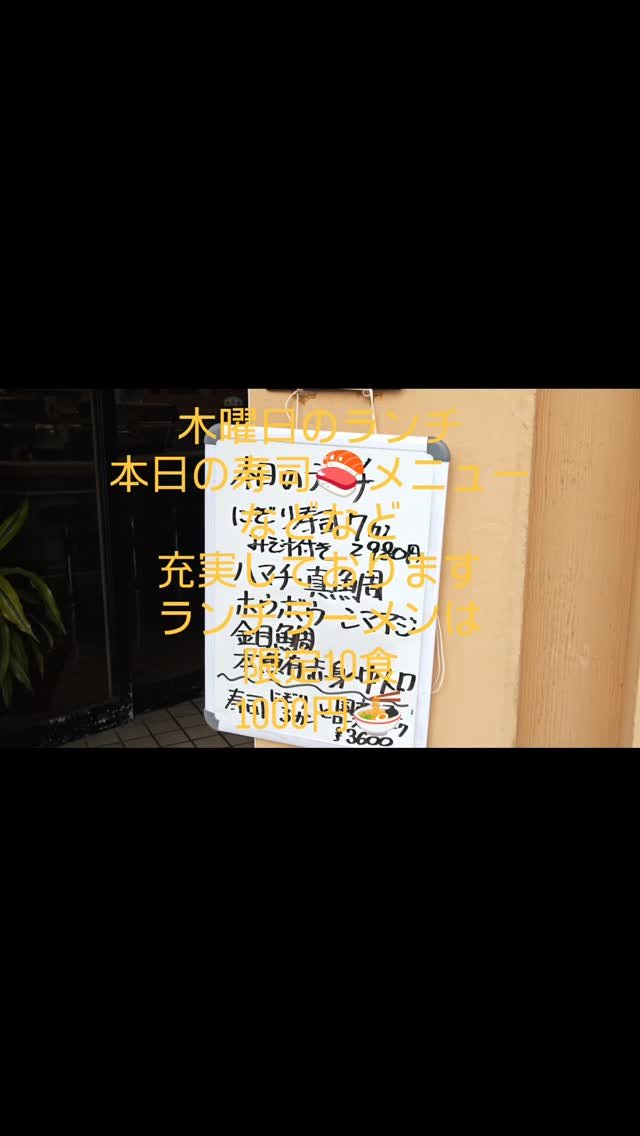 木曜日のランチ
本日の寿司🍣メニュー
などなど
充実しております
ランチラーメンは
限定10食
1000円🍜
本日のランチ
にぎり寿司7カン
みそ汁付き 2980円
ハマチ 真鯛
ホウボウ シマアジ
金目鯛
赤身 中トロ
寿司
¥3600